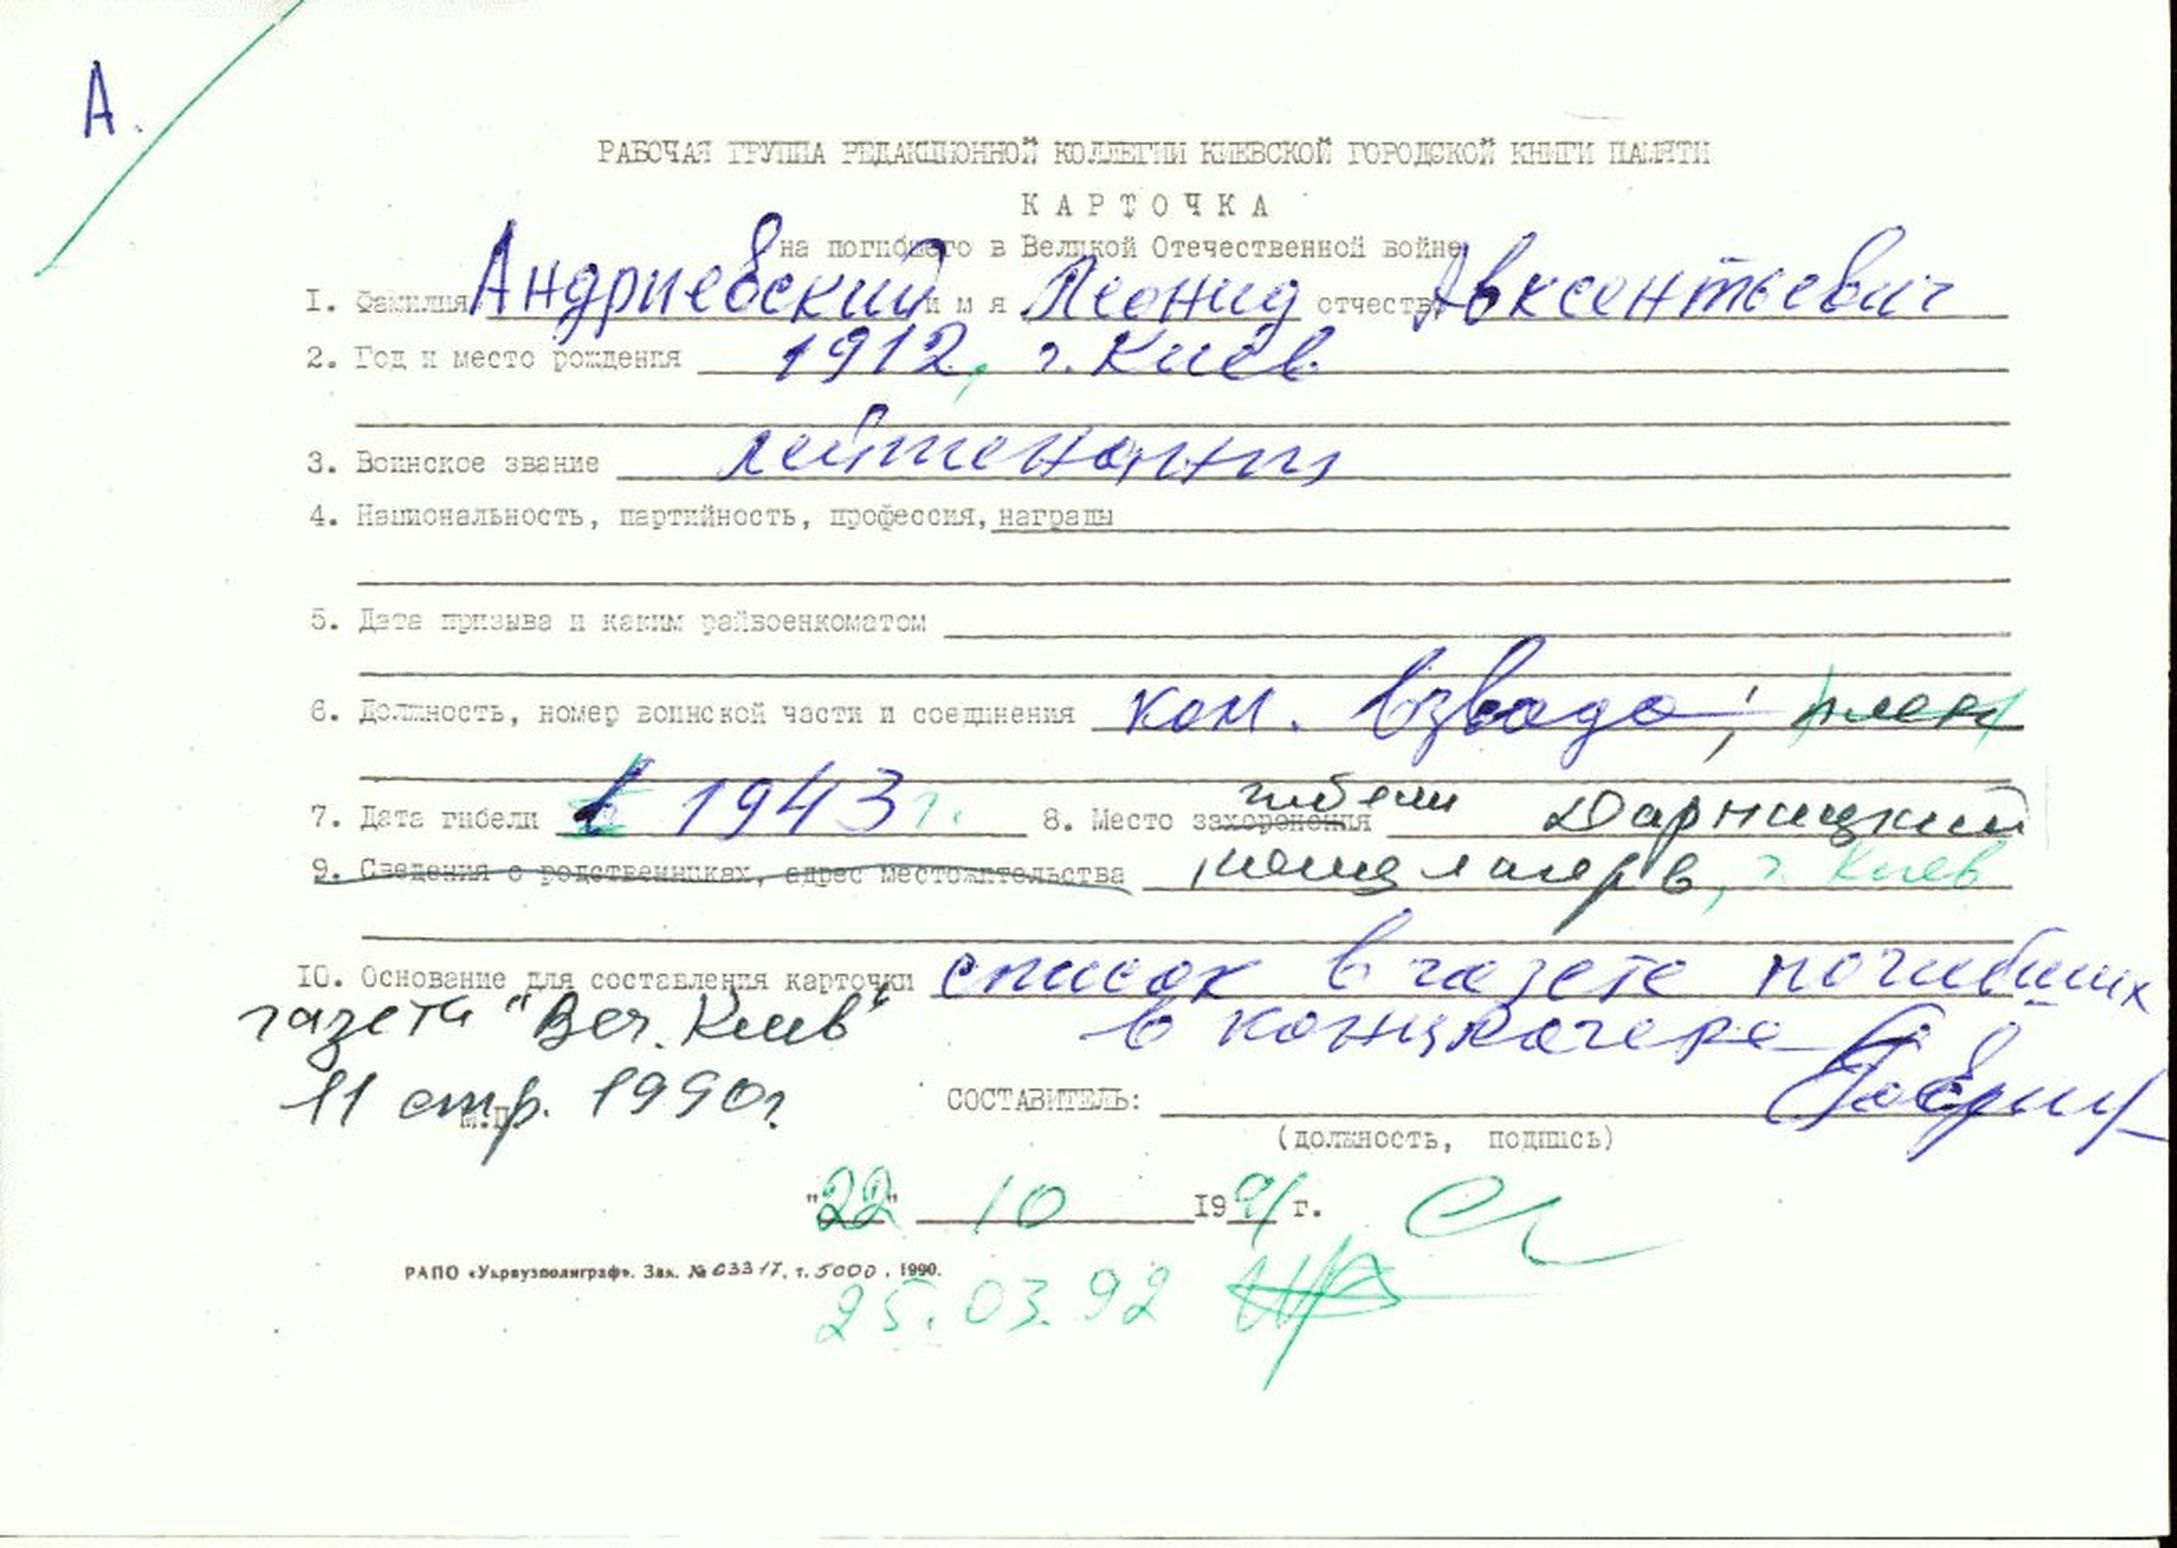 А.
РАБОЧАЯ ГРУППА РЕДАКЦИОННОЙ КОЛЛЕГИИ КИЕВСКОЙ ГОРОДСКОЙ КНИГИ ПАМЯТИ
КАРТОЧКА
на погибшего в Великой Отечественной войне
1. Фамилия Андриевский имя Леонид отчество Авксентьевич
2. Год и место рождения 1912, г. Киев
3. Воинское звание лейтенант
4. Национальность, партийность, профессия, награды
5. Дата призыва и каким райвоенкоматом
6. Должность, номер воинской части и соединения ком. взвода; плен
гибели
7. Дата гибели 1943 г. 8. Место захоронения Дарницкий
9. Сведения о родственниках, адрес местожительства концлагерь, г. Киев
10. Основание для составления карточки список в газете погибших
газета "Веч. Киев" в концлагере
11 стр. 1990г
М.П.
СОСТАВИТЕЛЬ:
(должность, подпись)
"22" 10 1991 г.
РАПО «Укрвузполиграф». Зак. № 0331Т, т. 5000, 1990.
25.03.92